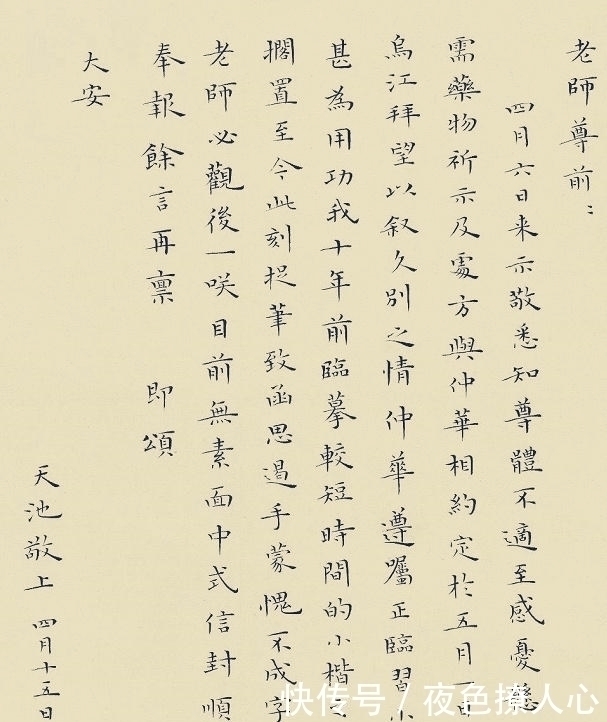 老师尊前：
四月六日来示敬悉知尊體不適至感憂
需藥物祈示及處方與仲華相約定於五月一日
烏江拜望以叙久別之情仲華遵囑正臨習小
甚為用功我十年前臨摹較短時間的小楷
擱置至今此刻捉筆致函思遏手蒙愧不成字
老師必觀後一咲目前無素面中式信封順
奉報餘言再禀 即頌
大安
天池敬上 四月十五日
快传号／夜色撩人心